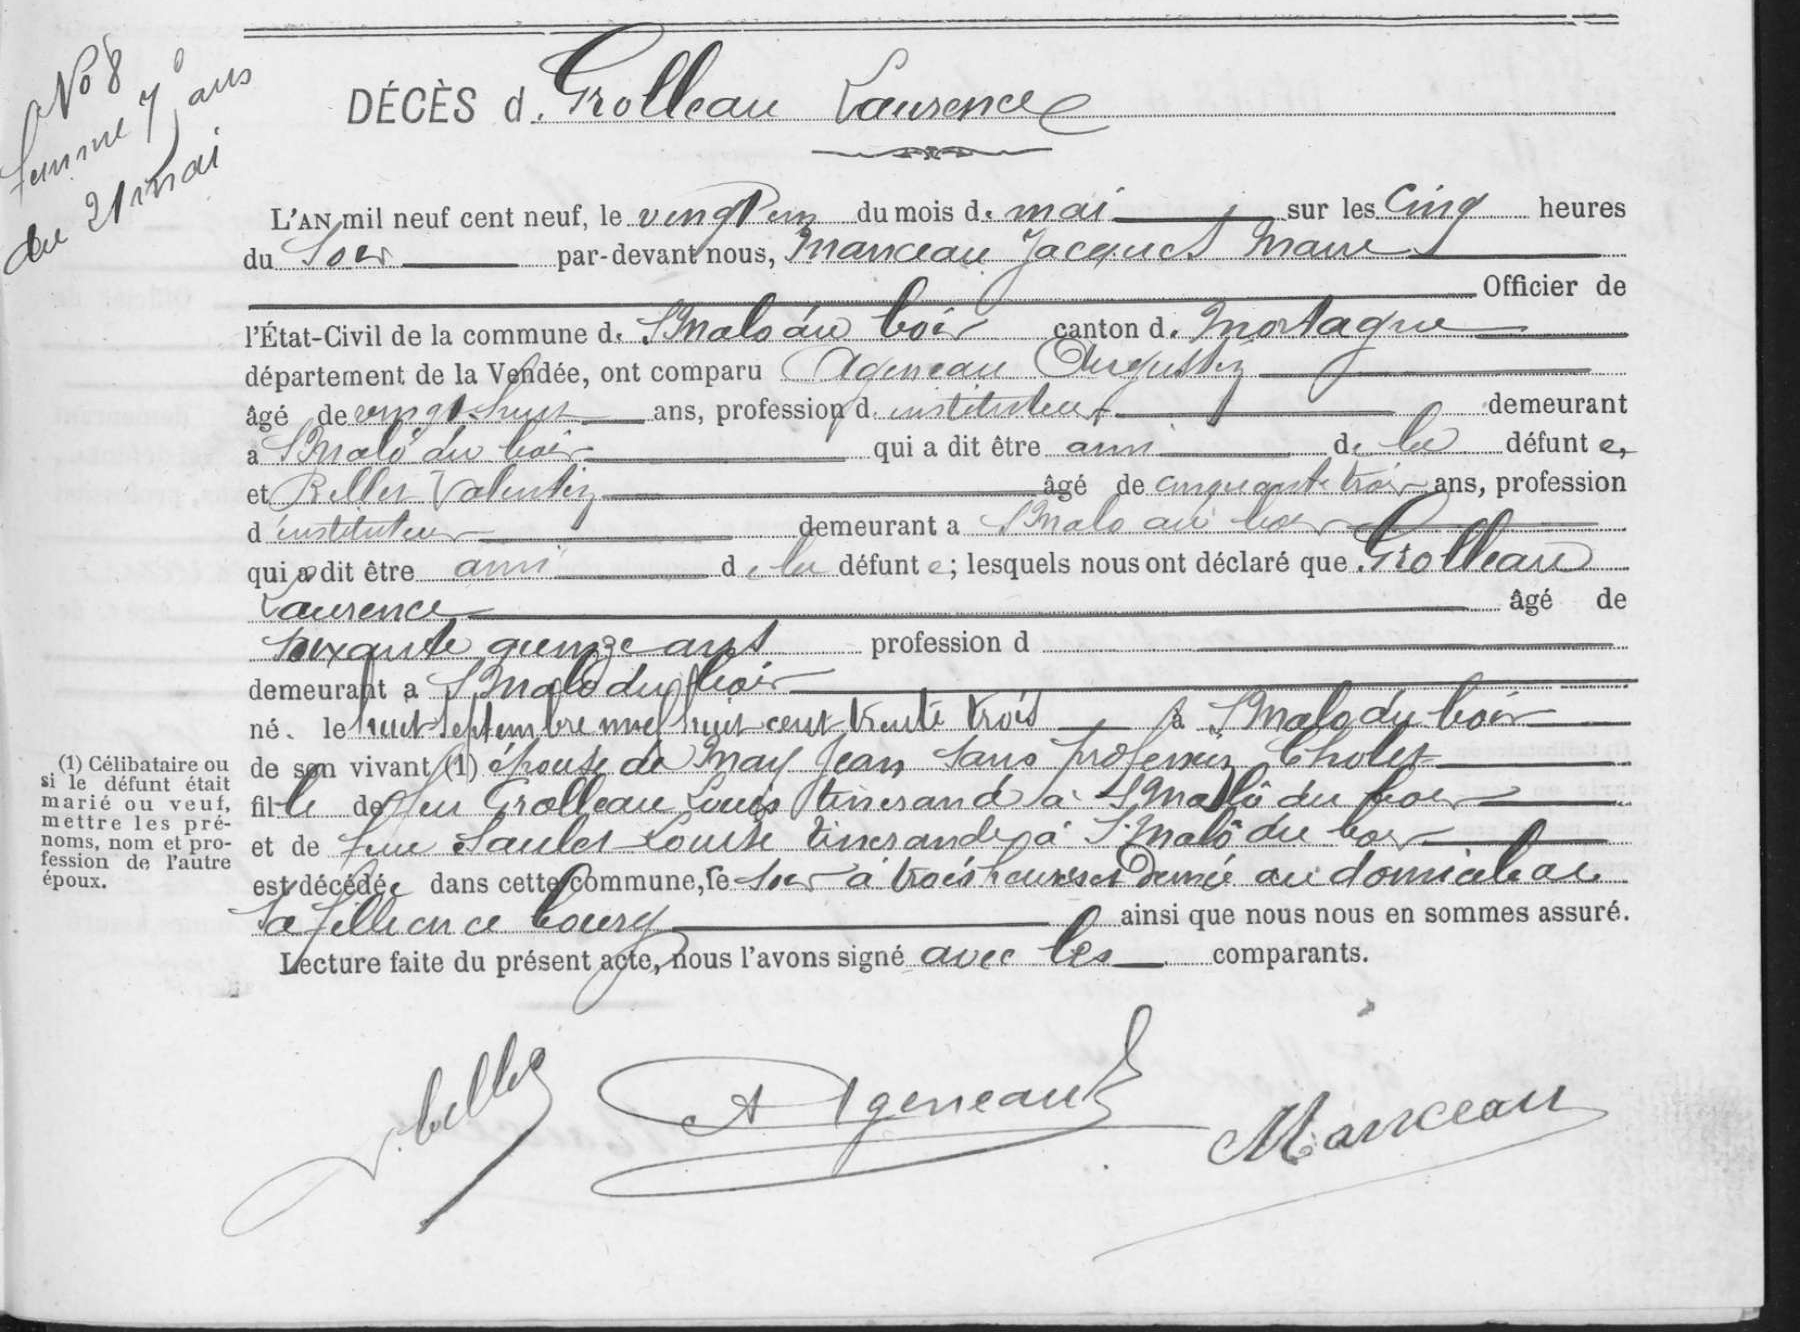 No 8
femme 7 ans
du 21 mai
DÉCÈS d. Grolleau Laurence
L'AN mil neuf cent neuf, le vingt un du mois de mai sur les cinq heures
du soir par-devant nous, Manceau Jacques Maire
Officier de
l'État-Civil de la commune de St Malo du bois canton de Mortagne
département de la Vendée, ont comparu Ageneau Augustin
âgé de vingt huit ans, profession d instituteur demeurant
a St Malô du bois qui a dit être ami de la défunt e,
et Beller Valentin âgé de cinquante trois ans, profession
d instituteur demeurant a St Malo du bois
qui a dit être ami de la défunt e; lesquels nous ont déclaré que Grolleau
Laurence âgé de
soixante quinze ans profession d
demeurant a St Malô du bois
né. le huit septembre mil huit cent trente trois à St Malo du bois
(1) Célibataire ou
si le défunt était
marié ou veuf,
mettre les pré-
noms, nom et pro-
fession de l'autre
époux.
de son vivant (1) épouse de May Jean sans profession Cholet
fille de feu Grolleau Louis tisserand à St Malô du bois
et de feue Louise tisserande à St Malô du bois
est décédée dans cette commune, ce soir à trois heures et demie au domicile de
sa fille en ce bourg ainsi que nous nous en sommes assuré.
Lecture faite du présent acte, nous l'avons signé avec les comparants.
A Ageneau Manceau